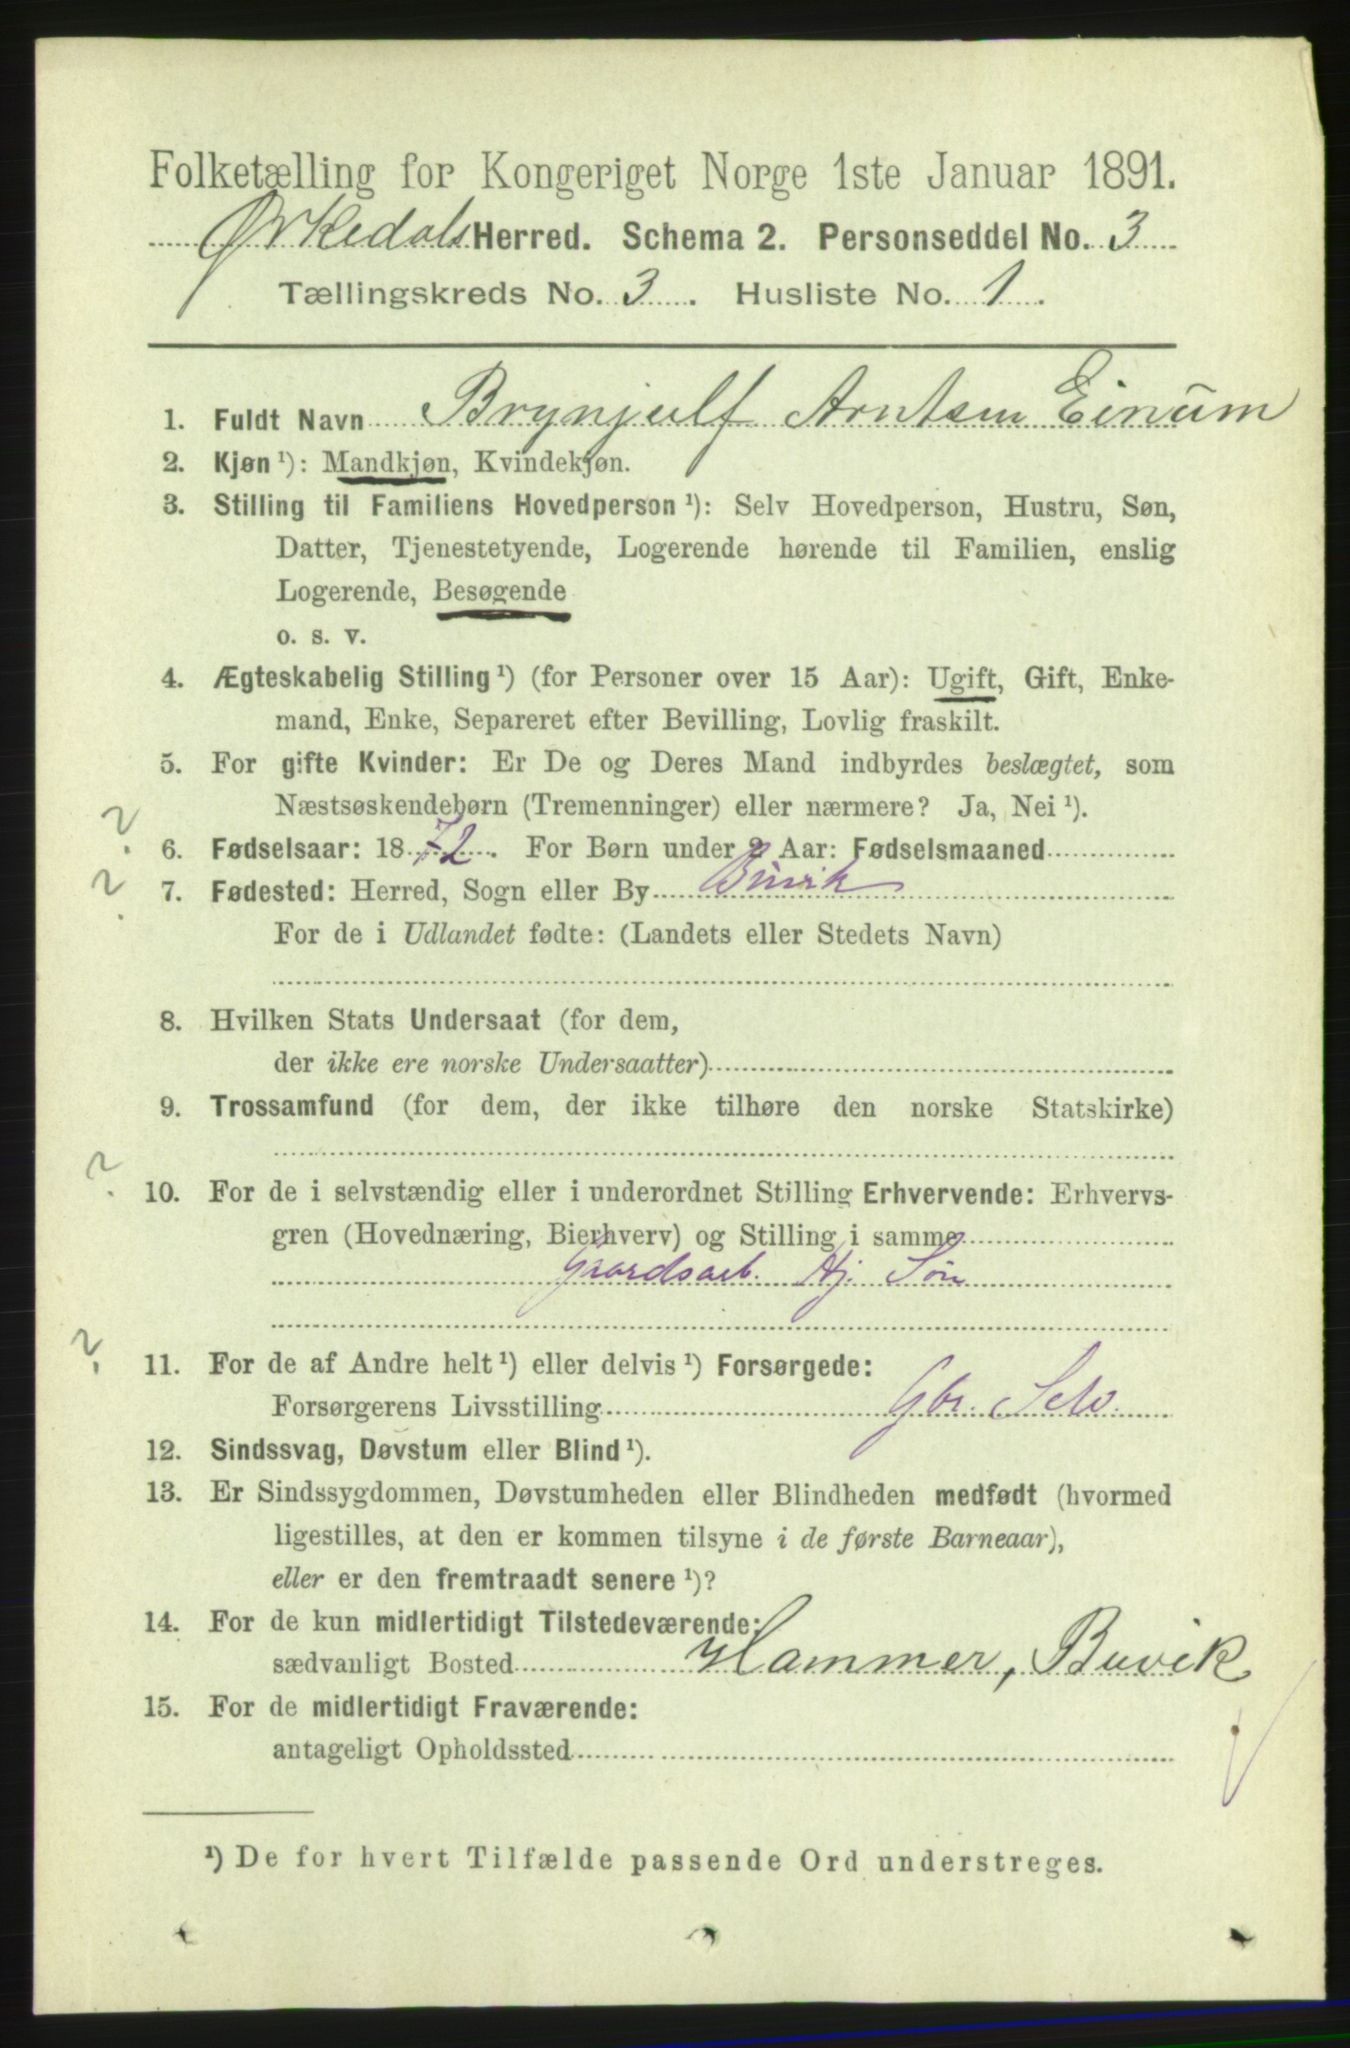 Folketælling for Kongeriget Norge 1ste Januar 1891.
Ørkedals Herred. Schema 2. Personseddel No. 3
Tællingskreds No. 3. Husliste No. 1.
1. Fuldt Navn Brynjulf Arntsen Einum
2. Kjøn ¹): Mandkjøn, Kvindekjøn.
3. Stilling til Familiens Hovedperson ¹): Selv Hovedperson, Hustru, Søn,
Datter, Tjenestetyende, Logerende hørende til Familien, enslig
Logerende, Besøgende
o. s. v.
4. Ægteskabelig Stilling ¹) (for Personer over 15 Aar): Ugift, Gift, Enke-
mand, Enke, Separeret efter Bevilling, Lovlig fraskilt.
5. For gifte Kvinder: Er De og Deres Mand indbyrdes beslægtet, som
Næstsøskendebørn (Tremenninger) eller nærmere? Ja, Nei ¹).
? 6. Fødselsaar: 1872. For Børn under 2 Aar: Fødselsmaaned
? 7. Fødested: Herred, Sogn eller By Buvik
For de i Udlandet fødte: (Landets eller Stedets Navn)
8. Hvilken Stats Undersaat (for dem,
der ikke ere norske Undersaatter)
9. Trossamfund (for dem, der ikke tilhøre den norske Statskirke)
? 10. For de i selvstændig eller i underordnet Stilling Erhvervende: Erhvervs-
gren (Hovednæring, Bierhverv) og Stilling i samme
Gaardsarb. Hj. Søn
? 11. For de af Andre helt ¹) eller delvis ¹) Forsørgede:
Forsørgerens Livsstilling Gbr. Selv.
12. Sindssvag, Døvstum eller Blind ¹).
13. Er Sindssygdommen, Døvstumheden eller Blindheden medfødt (hvormed
ligestilles, at den er kommen tilsyne i de første Barneaar),
eller er den fremtraadt senere ¹)?
14. For de kun midlertidigt Tilstedeværende:
sædvanligt Bosted Hammer, Buvik
15. For de midlertidigt Fraværende:
antageligt Opholdssted
¹) De for hvert Tilfælde passende Ord understreges.